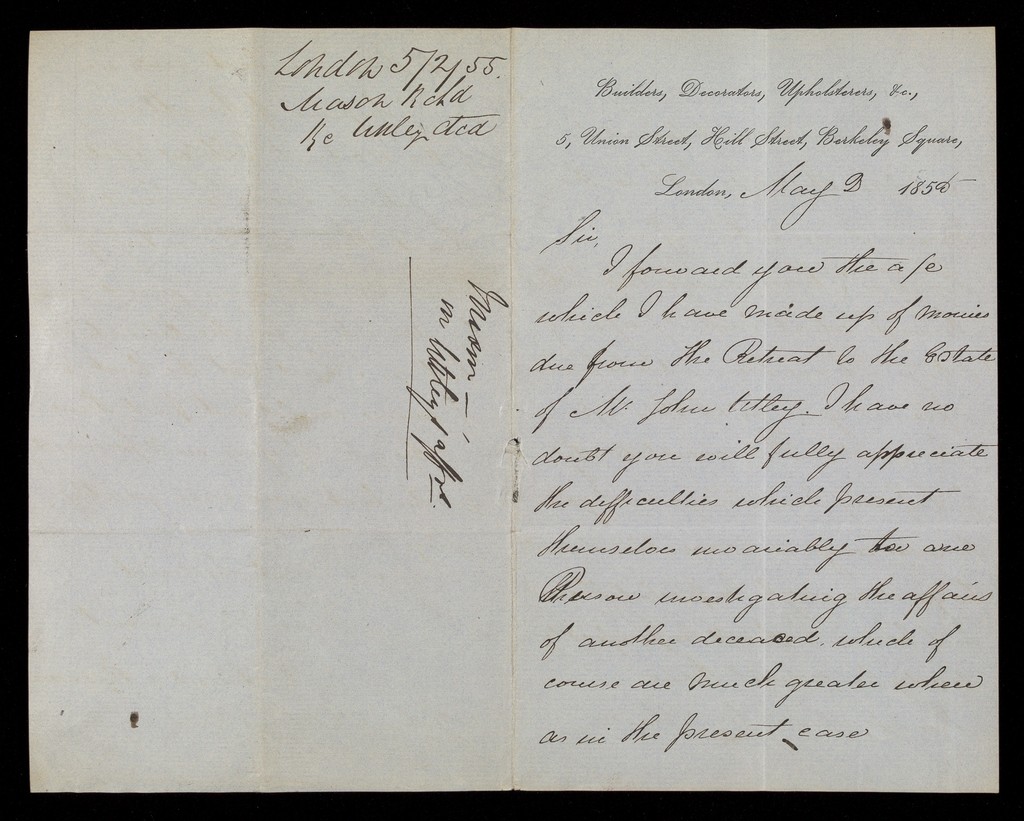 London 5/2/55.
Mason Rchd
Re Utley dcd
Mason
in Utley's affrs.
Builders, Decorators, Upholsterers, &c.,
5, Union Street, Hill Street, Berkeley Square,
London, May 2 1855
Sir,
I forward you the a/c
which I have made up of monies
due from the Retreat to the Estate
of Mr. John Utley. I have no
doubt you will fully appreciate
the difficulties which present
themselves invariably to one
Person investigating the affairs
of another deceased, which of
course are much greater where
as in the present case